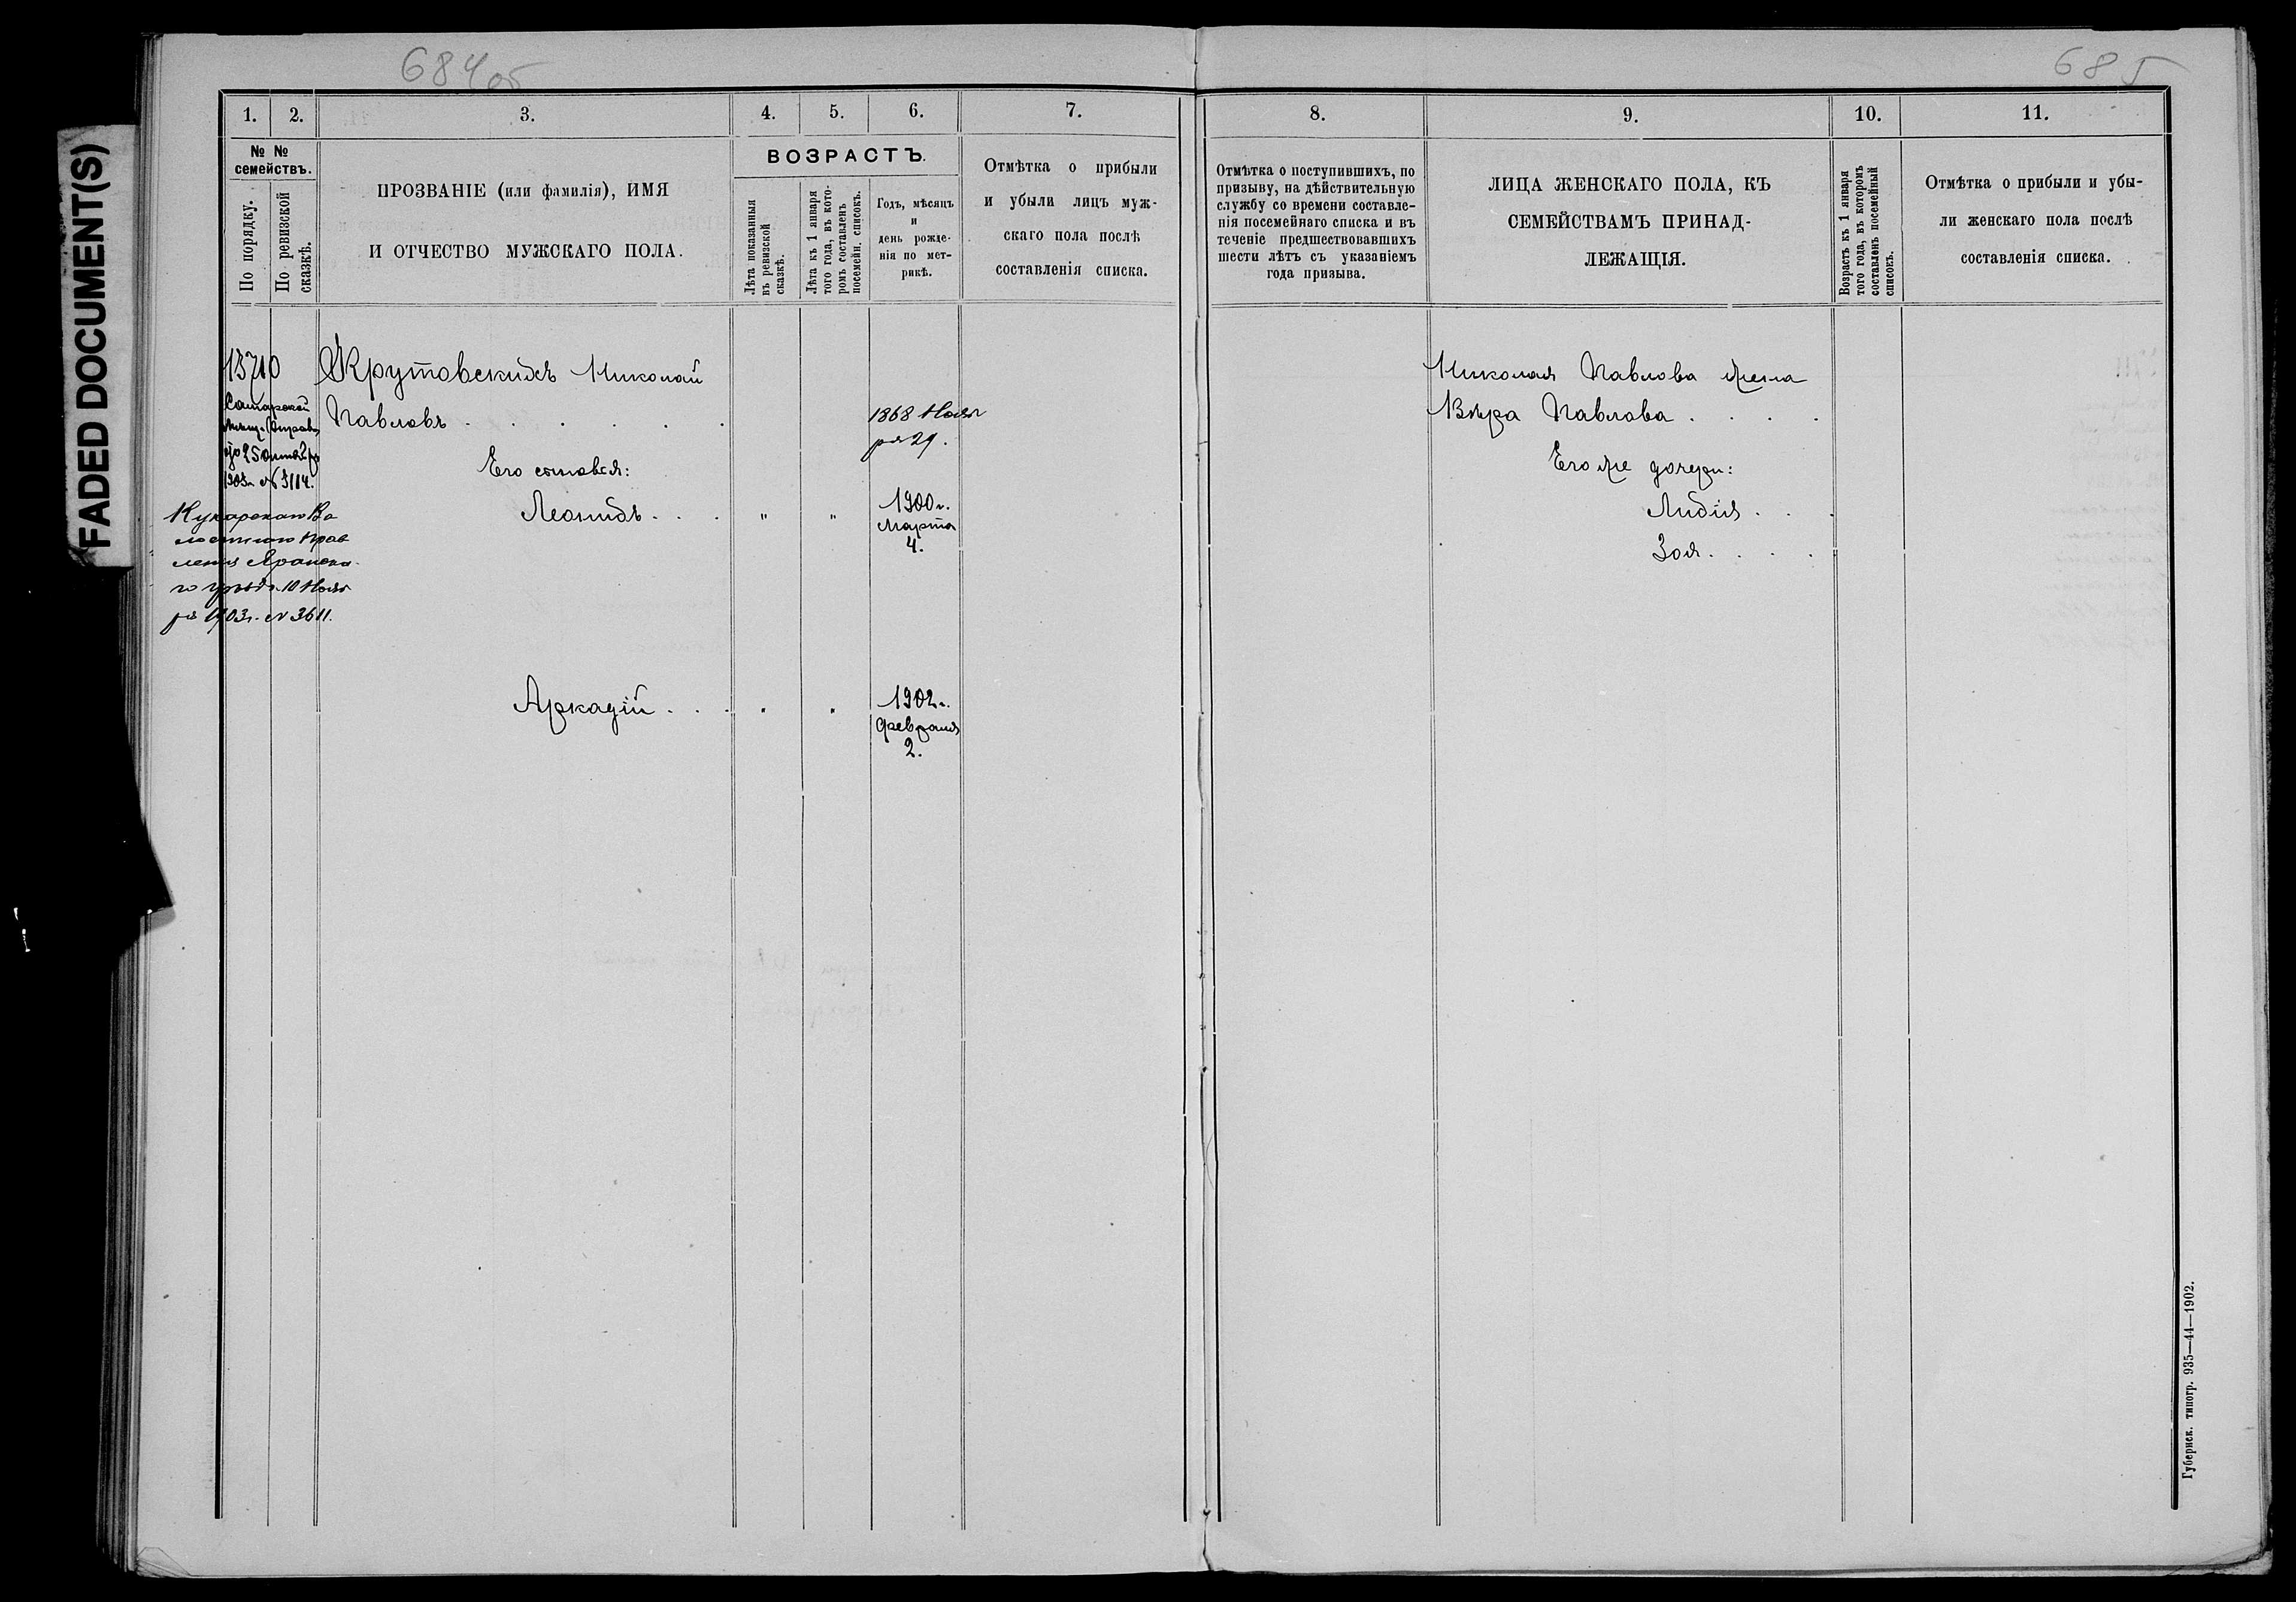 684об
685
FADED DOCUMENT(S)
1.
2.
3.
4.
5.
6.
7.
№ №
семействъ.
По порядку.
По ревизской
сказкѣ.
ПРОЗВАНІЕ (или фамилія), ИМЯ
И ОТЧЕСТВО МУЖСКАГО ПОЛА.
ВОЗРАСТЪ.
Лѣта показанныя
въ ревизской
сказкѣ.
Лѣта къ 1 января
того года, въ кото-
ромъ составленъ
посемейн. списокъ.
Годъ, мѣсяцъ
и
день рожде-
нія по мет-
рикѣ.
Отмѣтка о прибыли
и убыли лицъ муж-
скаго пола послѣ
составленія списка.
13710
Самарской
Мѣщ. Управы
1903г. № 3114.
Кукарскаго Во
лостного Прав
ленія Яранска
го уѣзда 10 Нояб
ря 1903г. № 3611.
Крутовскихъ Николай
Павловъ . . . . . .
1868 Нояб
ря 29.
Его сыновья:
Леонидъ . . . " "
1900г.
Марта
4.
Аркадій . . . " "
1902г.
Февраля
2.
8.
9.
10.
11.
Отмѣтка о поступившихъ, по
призыву, на дѣйствительную
службу со времени составле-
нія посемейнаго списка и въ
теченіе предшествовавшихъ
шести лѣтъ съ указаніемъ
года призыва.
ЛИЦА ЖЕНСКАГО ПОЛА, КЪ
СЕМЕЙСТВАМЪ ПРИНАД-
ЛЕЖАЩІЯ.
Возрастъ къ 1 января
того года, въ которомъ
составленъ посемейный
списокъ.
Отмѣтка о прибыли и убы-
ли женскаго пола послѣ
составленія списка.
Николая Павлова жена
Вѣра Павлова . . . .
Его же дочери:
Лидія . . .
Зоя . . . .
Губернск. типогр. 935—44—1902.